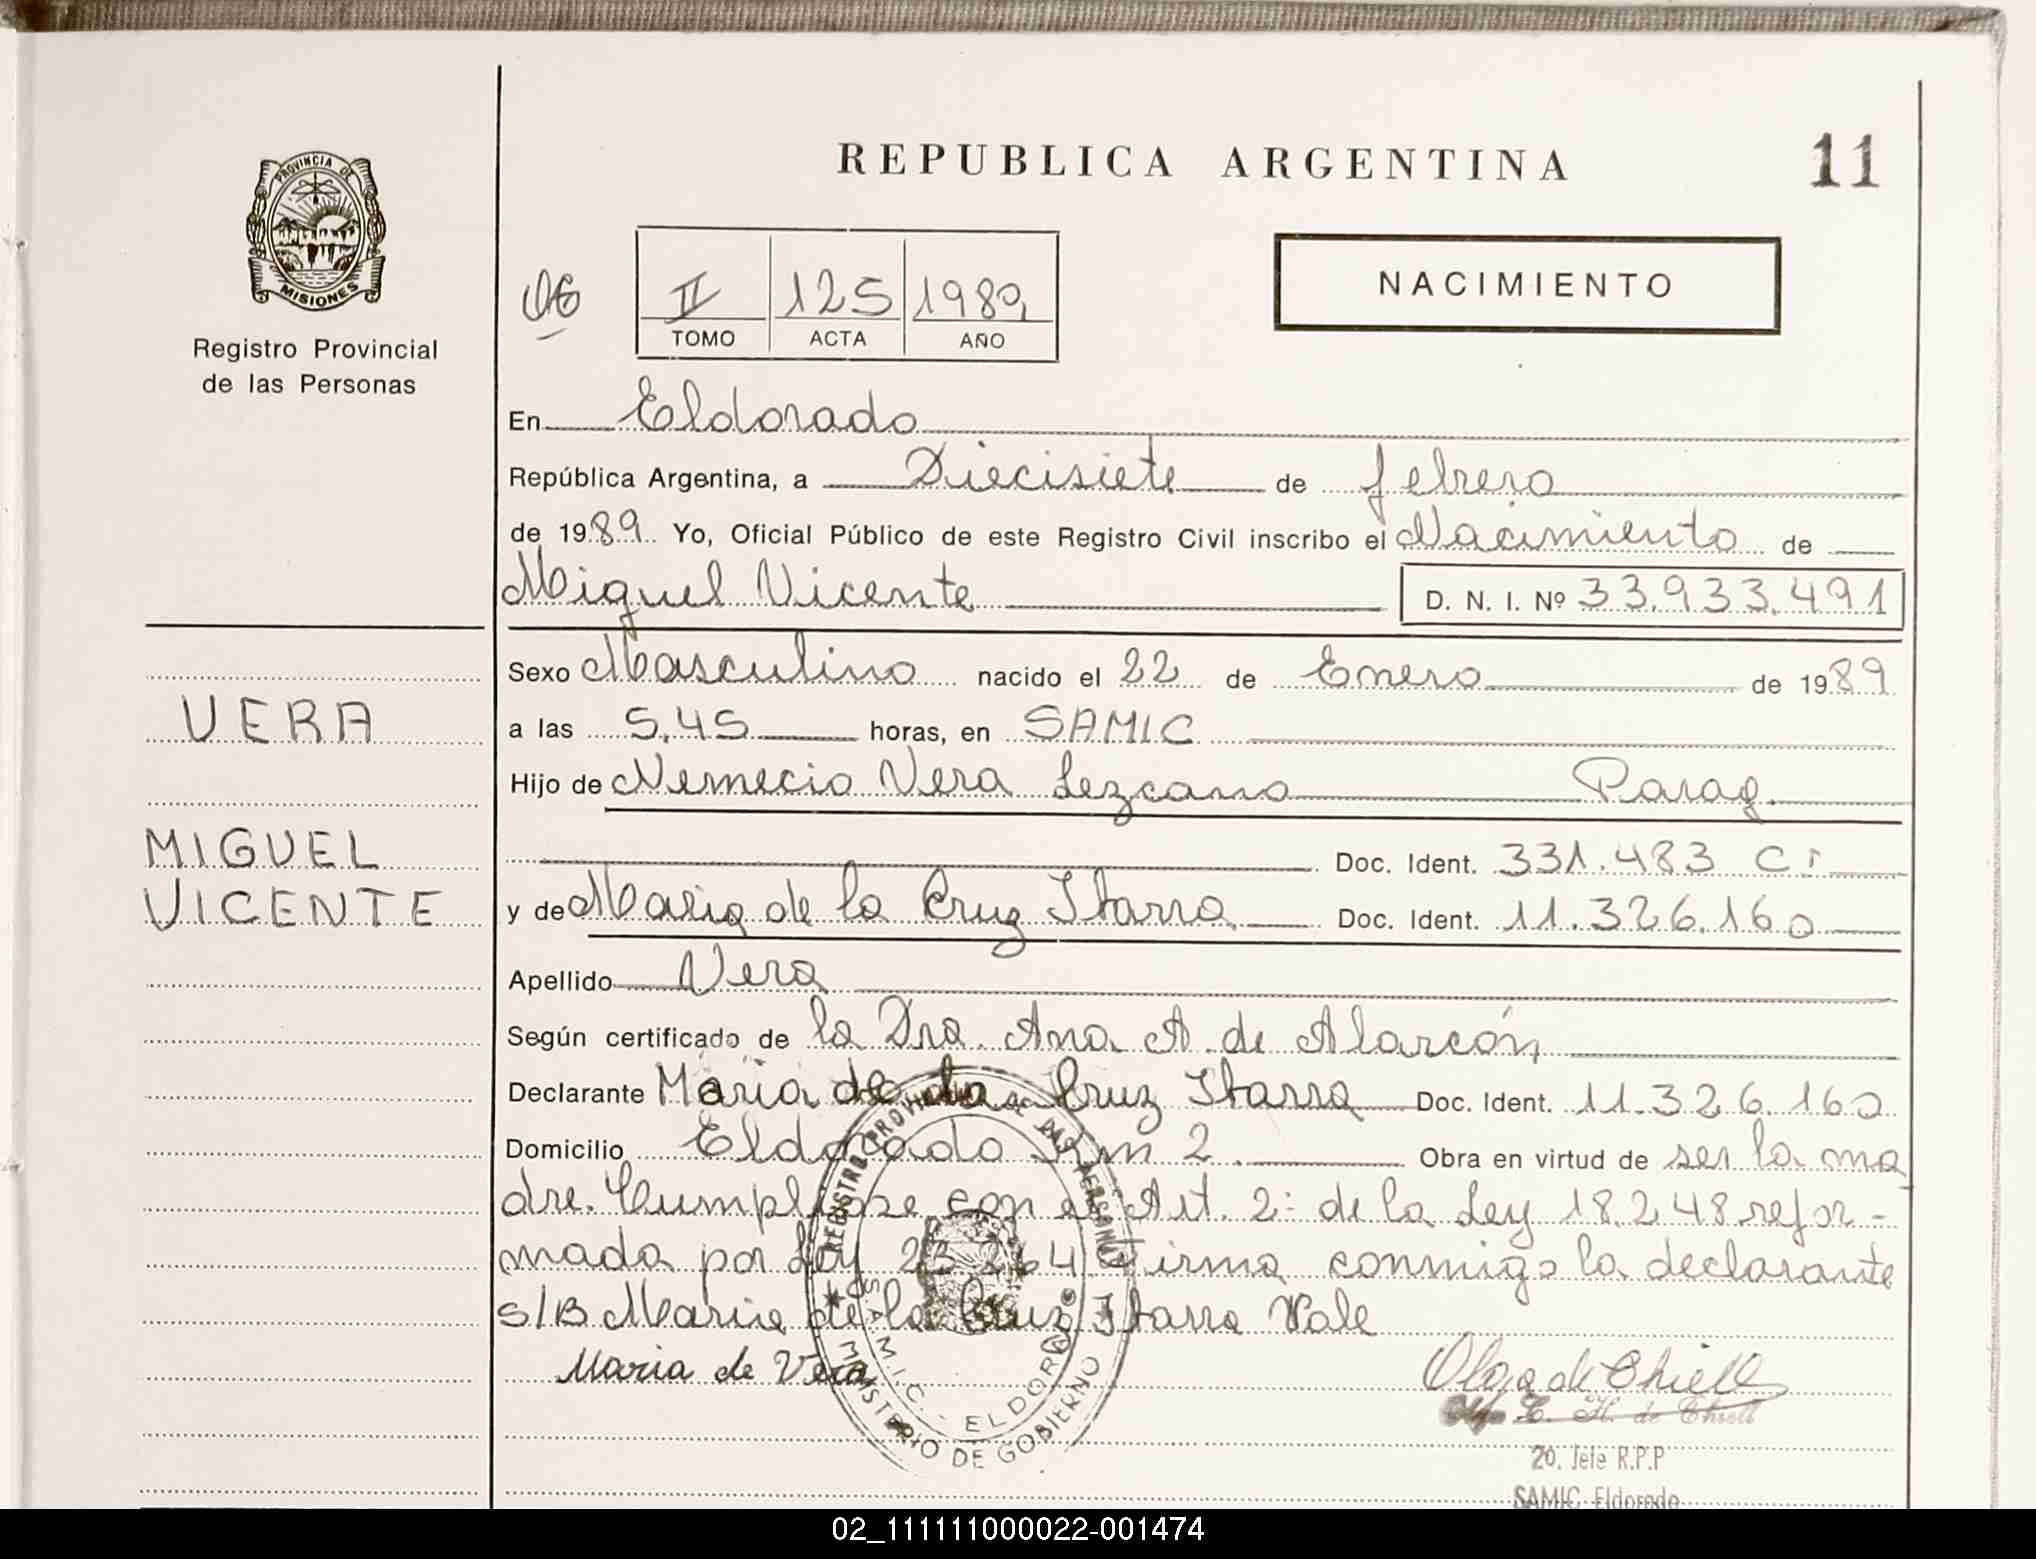 REPUBLICA ARGENTINA
11
PROVINCIA DE
MISIONES
Registro Provincial
de las Personas
II 125 1989
TOMO ACTA AÑO
NACIMIENTO
En Eldorado
República Argentina, a Diecisiete de febrero
de 1989 Yo, Oficial Público de este Registro Civil inscribo el Nacimiento de
Miguel Vicente D. N. I. Nº 33.933.491
Sexo Masculino nacido el 22 de Enero de 1989
VERA
a las 5,45 horas, en SAMIC
Hijo de Nemecio Vera Lezcano Parag.
MIGUEL
Doc. Ident. 331.483 CI
VICENTE
y de Maria de la Cruz Ibarra Doc. Ident. 11.326.160
Apellido Vera
Según certificado de la Dra. Ana A. de Alarcón
Declarante Maria de la Cruz Ibarra Doc. Ident. 11.326.160
Domicilio Eldorado Km 2. Obra en virtud de ser la ma
dre. Cumplese con el Art. 2: de la Ley 18.248 refor-
mada por Ley 23.264 Firma conmigo la declarante
S/B Maria de la Cruz Ibarra Vale
Maria de Vera
Olga de Chiell
Olga E. H. de Chiell
20. Jefe R.P.P
SAMIC Eldorado
REGISTRO PROVINCIAL DE LAS PERSONAS
S.A.M.I.C. - ELDORADO
MINISTERIO DE GOBIERNO
02_111111000022-001474